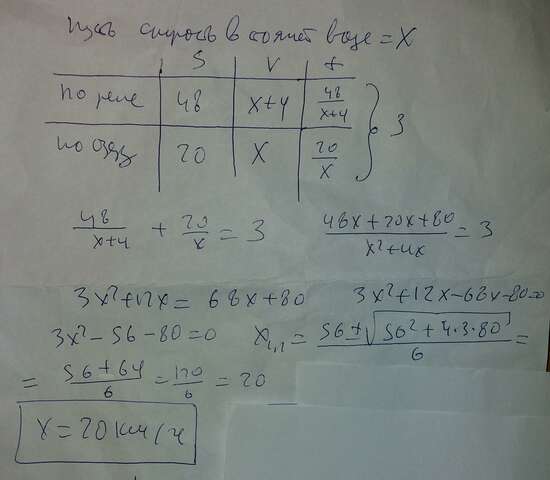 Пусть скорость в стоячей воде = X
S V t
по реке 48 x+4 48/(x+4)
по озеру 20 x 20/x } 3
48/(x+4) + 20/x = 3 (48x+20x+80)/(x²+4x) = 3
3x²+12x = 68x+80 3x²+12x-68x-80=0
3x²-56-80=0 x₁,₂ = (56±√(56²+4·3·80))/6 =
= (56+64)/6 = 120/6 = 20
x=20 км/ч